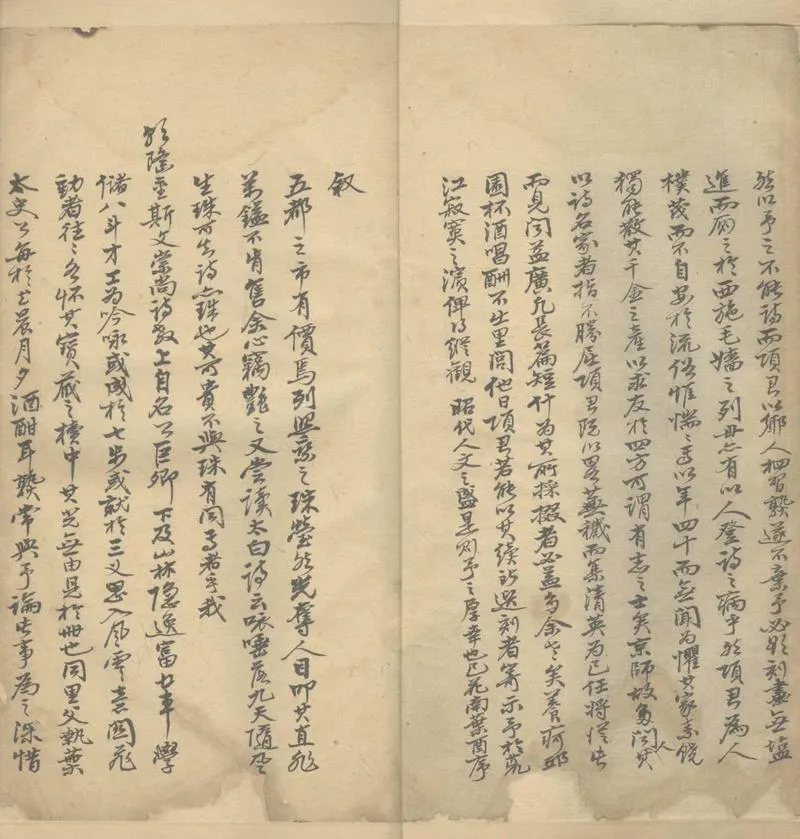 然以予之不能詩而項君以鄉人相習䙝遂不棄予必欲刻畫無塩
進而厠之於西施毛嬙之列毋亦有以人登詩之病乎然項君為人
樸茂而不自安於流俗惟惴惴焉以年四十而無聞為懼其家素饒
獨能散其千金之產以求友於四方可謂有志之士矣京師故多聞人其
以詩名家者指不勝屈項君既以畧蕪穢而集清英為己任將從此
而見聞益廣凡長篇短什為其所採掇者必益多余老矣養疴邱
園杯酒唱酬不出里閭他日項君若能以其續訂選刻者寄示予於荒
江寂寞之濱俾得縱觀 昭代人文之盛是則予之厚幸也已花南葉酉序
叙
五都之市有價焉列照乘之珠瑩然光奪人目叩其直非
萬鎰不肯售余心竊艷之又嘗讀太白詩云咳唾落九天隨風
生珠可知詩亦珠也其可貴不與珠有同焉者乎我
朝隆重斯文崇尚詩教上自名公巨卿下及山林隱逸富五車學
儲八斗才工為吟咏或成於七步或就於三叉思入風雲意國飛
動者往往各怀其寶藏之櫝中其光無由見於世也同里父執葉
太史公每於花晨月夕酒酣耳熱常與予論此事為之深惜